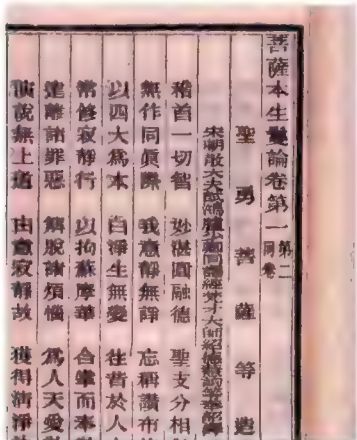 菩薩本生鬘論卷第一 第二同卷
聖勇菩薩等造
宋朝散大夫試鴻臚少卿同譯經梵才大師紹德慧詢等奉
稽首一切智 妙湛圓融德 聖支分相
無作同真際 我意靜無諍 忘稱讚布
以四大為本 自淨生無憂 往昔於人
常修寂靜行 以拘蘇摩華 合掌而本
遠離諸罪惡 解脫諸煩惱 為人天愛
演說無上道 由意寂靜故 獲得清淨